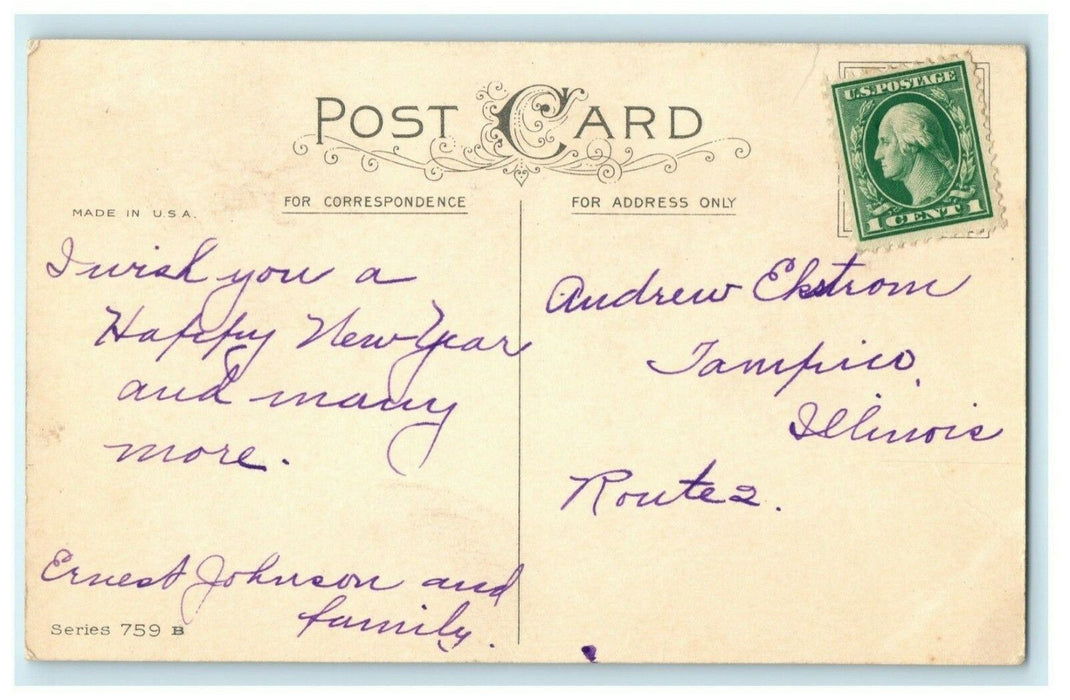 POST CARD
U.S. POSTAGE
1 CENT 1
FOR CORRESPONDENCE
FOR ADDRESS ONLY
MADE IN U.S.A.
I wish you a
Happy New Year
and many
more.
Ernest Johnson and
family.
Series 759 B
Andrew Ekstrom
Tampico
Illinois
Route 2.